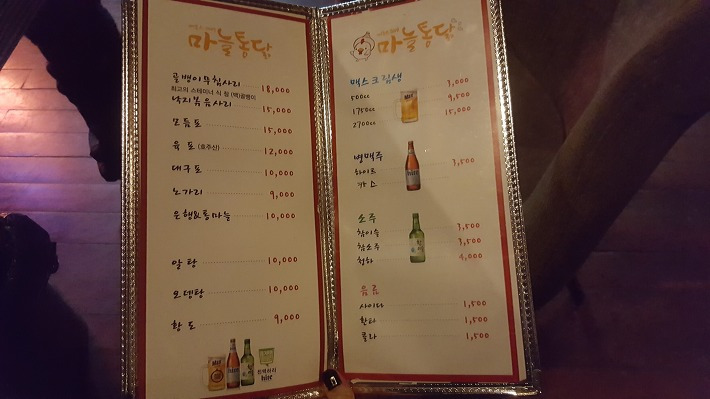 마늘통닭
골뱅이무침사리 18,000
최고의 스테미너 식 참 (백)골뱅이
낙지볶음사리 15,000
모듬포 15,000
육포 (호주산) 12,000
대구포 10,000
노가리 9,000
은행&통마늘 10,000
알탕 10,000
오뎅탕 10,000
황도 9,000
마늘통닭
맥스크림생
500cc 3,000
1750cc 9,500
2700cc 15,000
병맥주
하이트 3,500
카스
소주
참이슬 3,500
참소주 3,500
청하 4,000
음료
사이다 1,500
환타 1,500
콜라 1,500